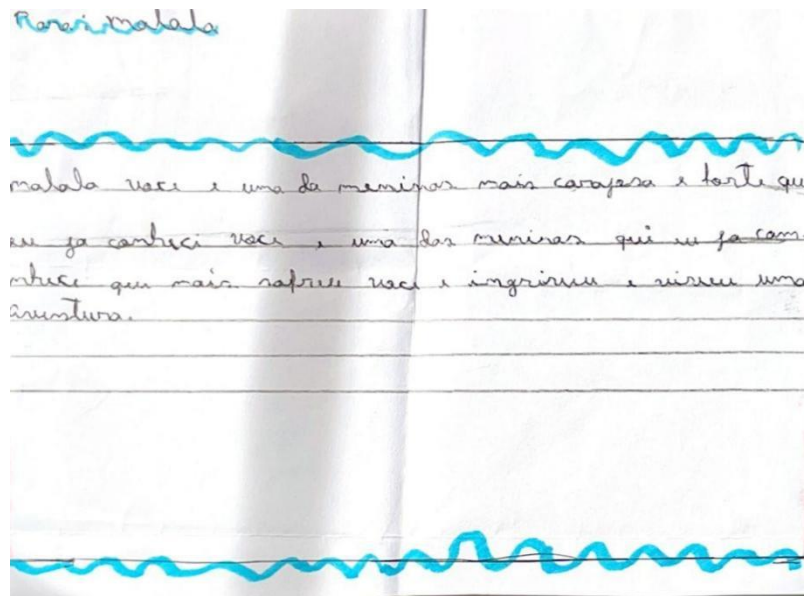 Para: malala
malala voce e uma da meninas mais corajosa e forte que
eu ja conheci voce e uma das meninas qui eu ja com
nhece que mais sofreu voce e ingriveu e viveu uma
aventura.